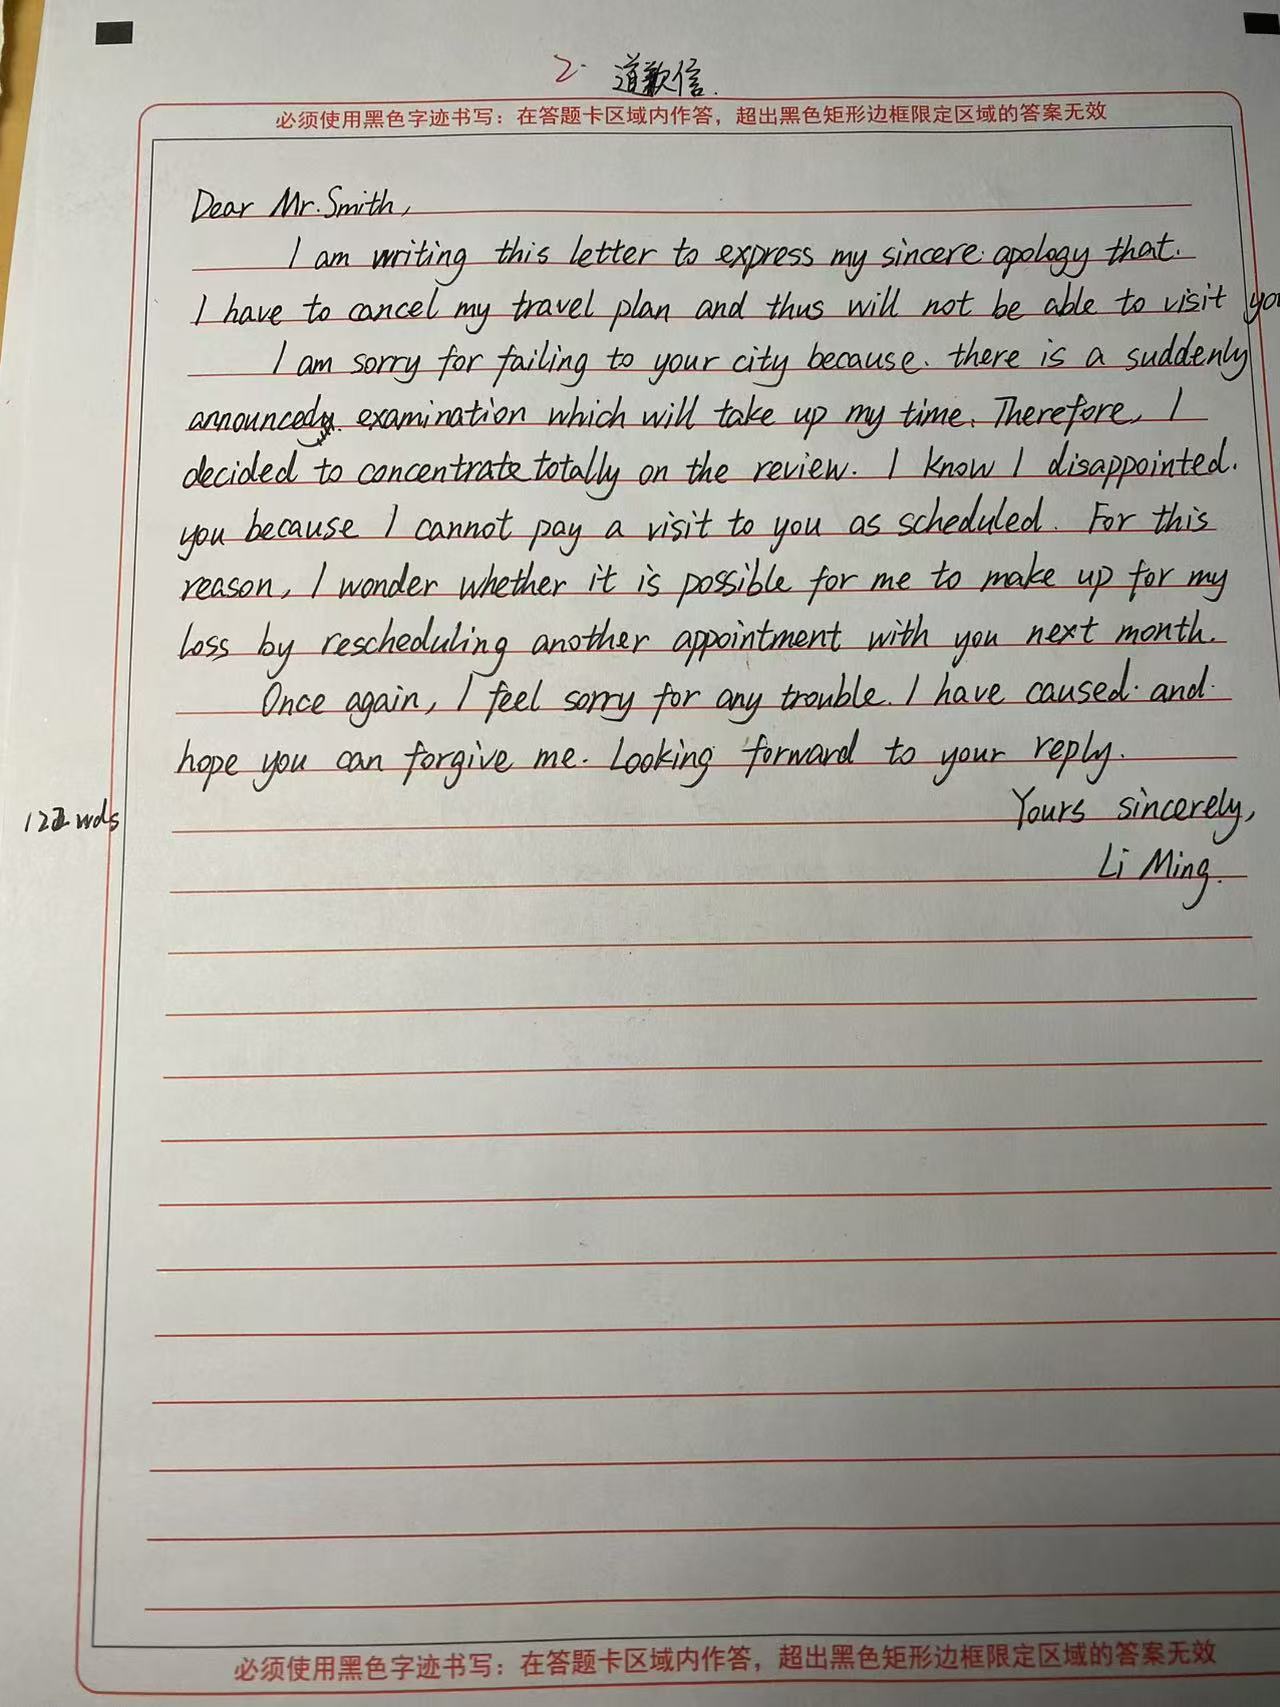 2. 道歉信.
必须使用黑色字迹书写：在答题卡区域内作答，超出黑色矩形边框限定区域的答案无效
Dear Mr. Smith,
I am writing this letter to express my sincere apology that.
I have to cancel my travel plan and thus will not be able to visit
I am sorry for failing to your city because. there is a suddenly
announced examination which will take up my time. Therefore, I
decided to concentrate totally on the review. I know I disappointed.
you because I cannot pay a visit to you as scheduled. For this
reason, I wonder whether it is possible for me to make up for my
loss by rescheduling another appointment with you next month.
Once again, I feel sorry for any trouble. I have caused. and.
hope you can forgive me. Looking forward to your reply.
Yours sincerely,
wds
Li Ming.
必须使用黑色字迹书写：在答题卡区域内作答，超出黑色矩形边框限定区域的答案无效